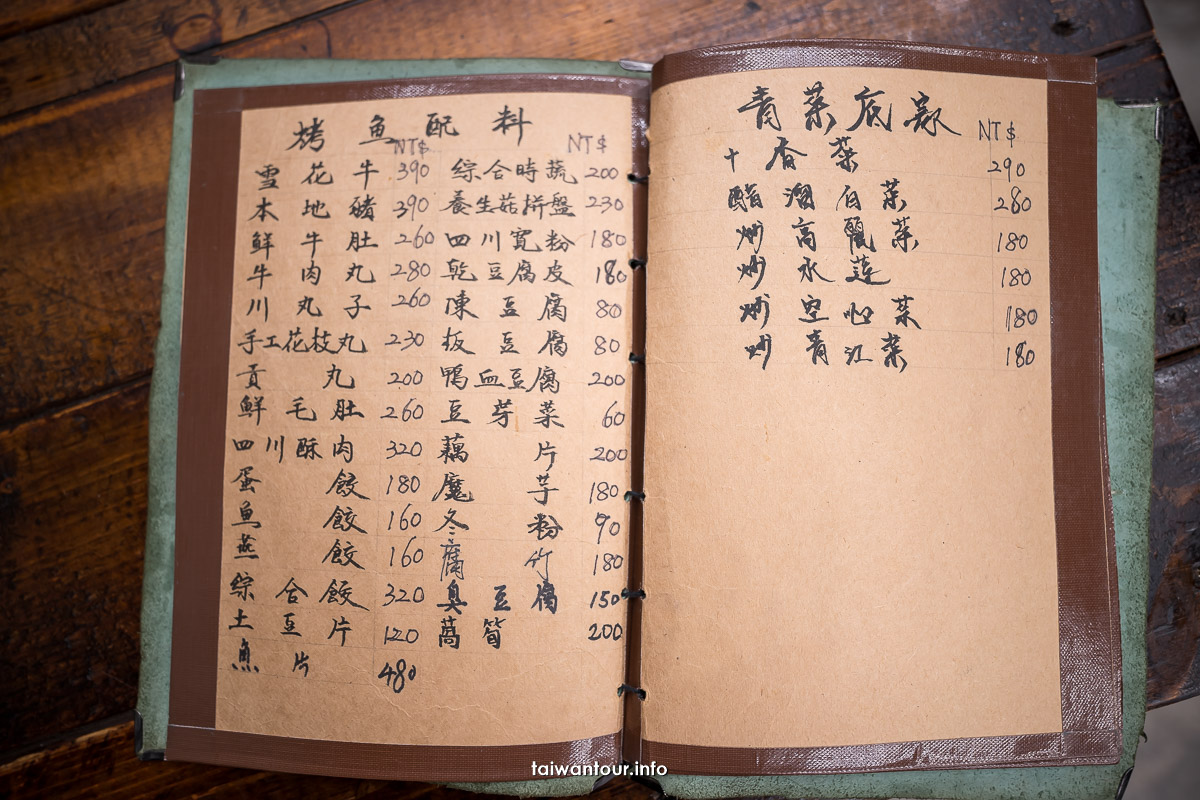 烤魚配料
NT$ NT$
雪花牛 390 綜合時蔬 200
本地豬 390 養生菇拼盤 230
鮮牛肚 260 四川寬粉 180
牛肉丸 280 乾豆腐皮 180
川丸子 260 凍豆腐 80
手工花枝丸 230 板豆腐 80
貢丸 200 鴨血豆腐 200
鮮毛肚 260 豆芽菜 60
四川酥肉 320 藕片 200
蛋餃 180 魔芋 180
魚餃 160 冬粉 90
燕餃 160 腐竹 180
綜合餃 320 臭豆腐 150
土豆片 120 萵筍 200
魚片 480
青菜底家
NT$
十香菜 290
醋溜白菜 280
炒高麗菜 180
炒水蓮 180
炒空心菜 180
炒青江菜 180
taiwantour.info